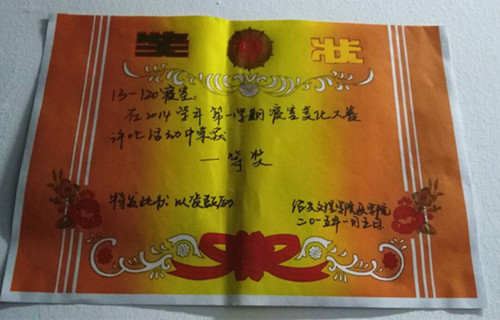 奖 状
13-120寝室:
在2014学年第一学期寝室美化大赛
评比活动中荣获
一等奖
特发此书 以资鼓励
学院
二〇一五年一月五日